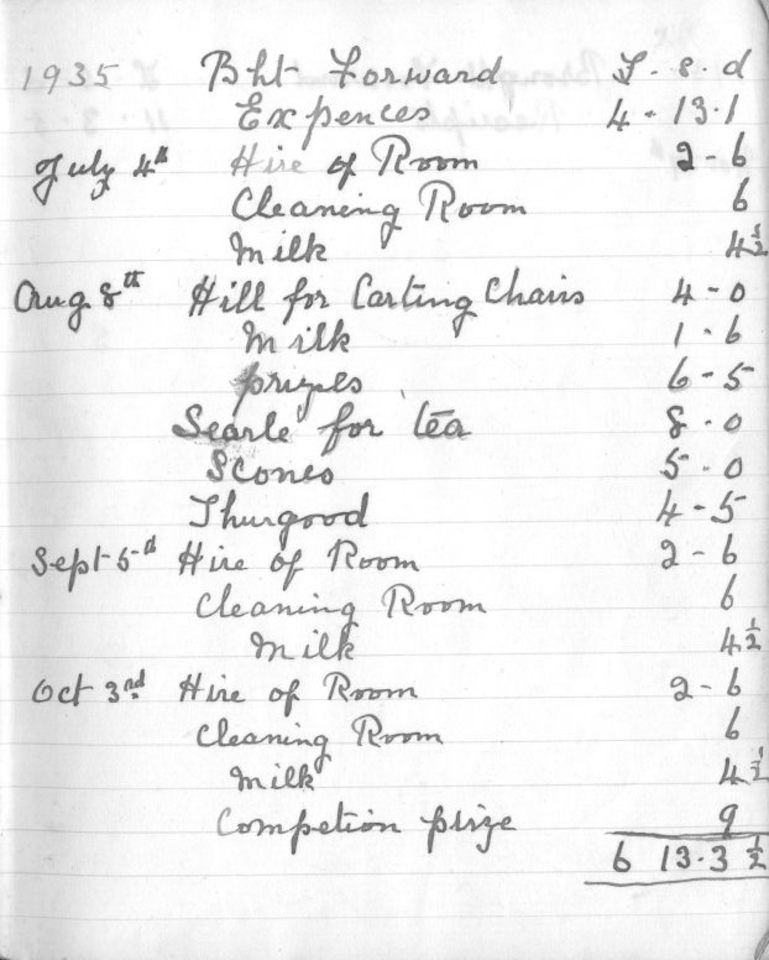 1935 Bht Forward £ . s . d
Expences 4 - 13 . 1
July 4th Hire of Room 2 - 6
Cleaning Room 6
Milk 4½
Aug 8th Hill for Carting Chairs 4 - 0
Milk 1 . 6
prizes 6 - 5
Searle for tea 8 . 0
Scones 5 . 0
Thurgood 4 - 5
Sept 5th Hire of Room 2 - 6
Cleaning Room 6
Milk 4½
Oct 3rd Hire of Room 2 - 6
Cleaning Room 6
Milk 4½
Competion prize 9
6 13 . 3½